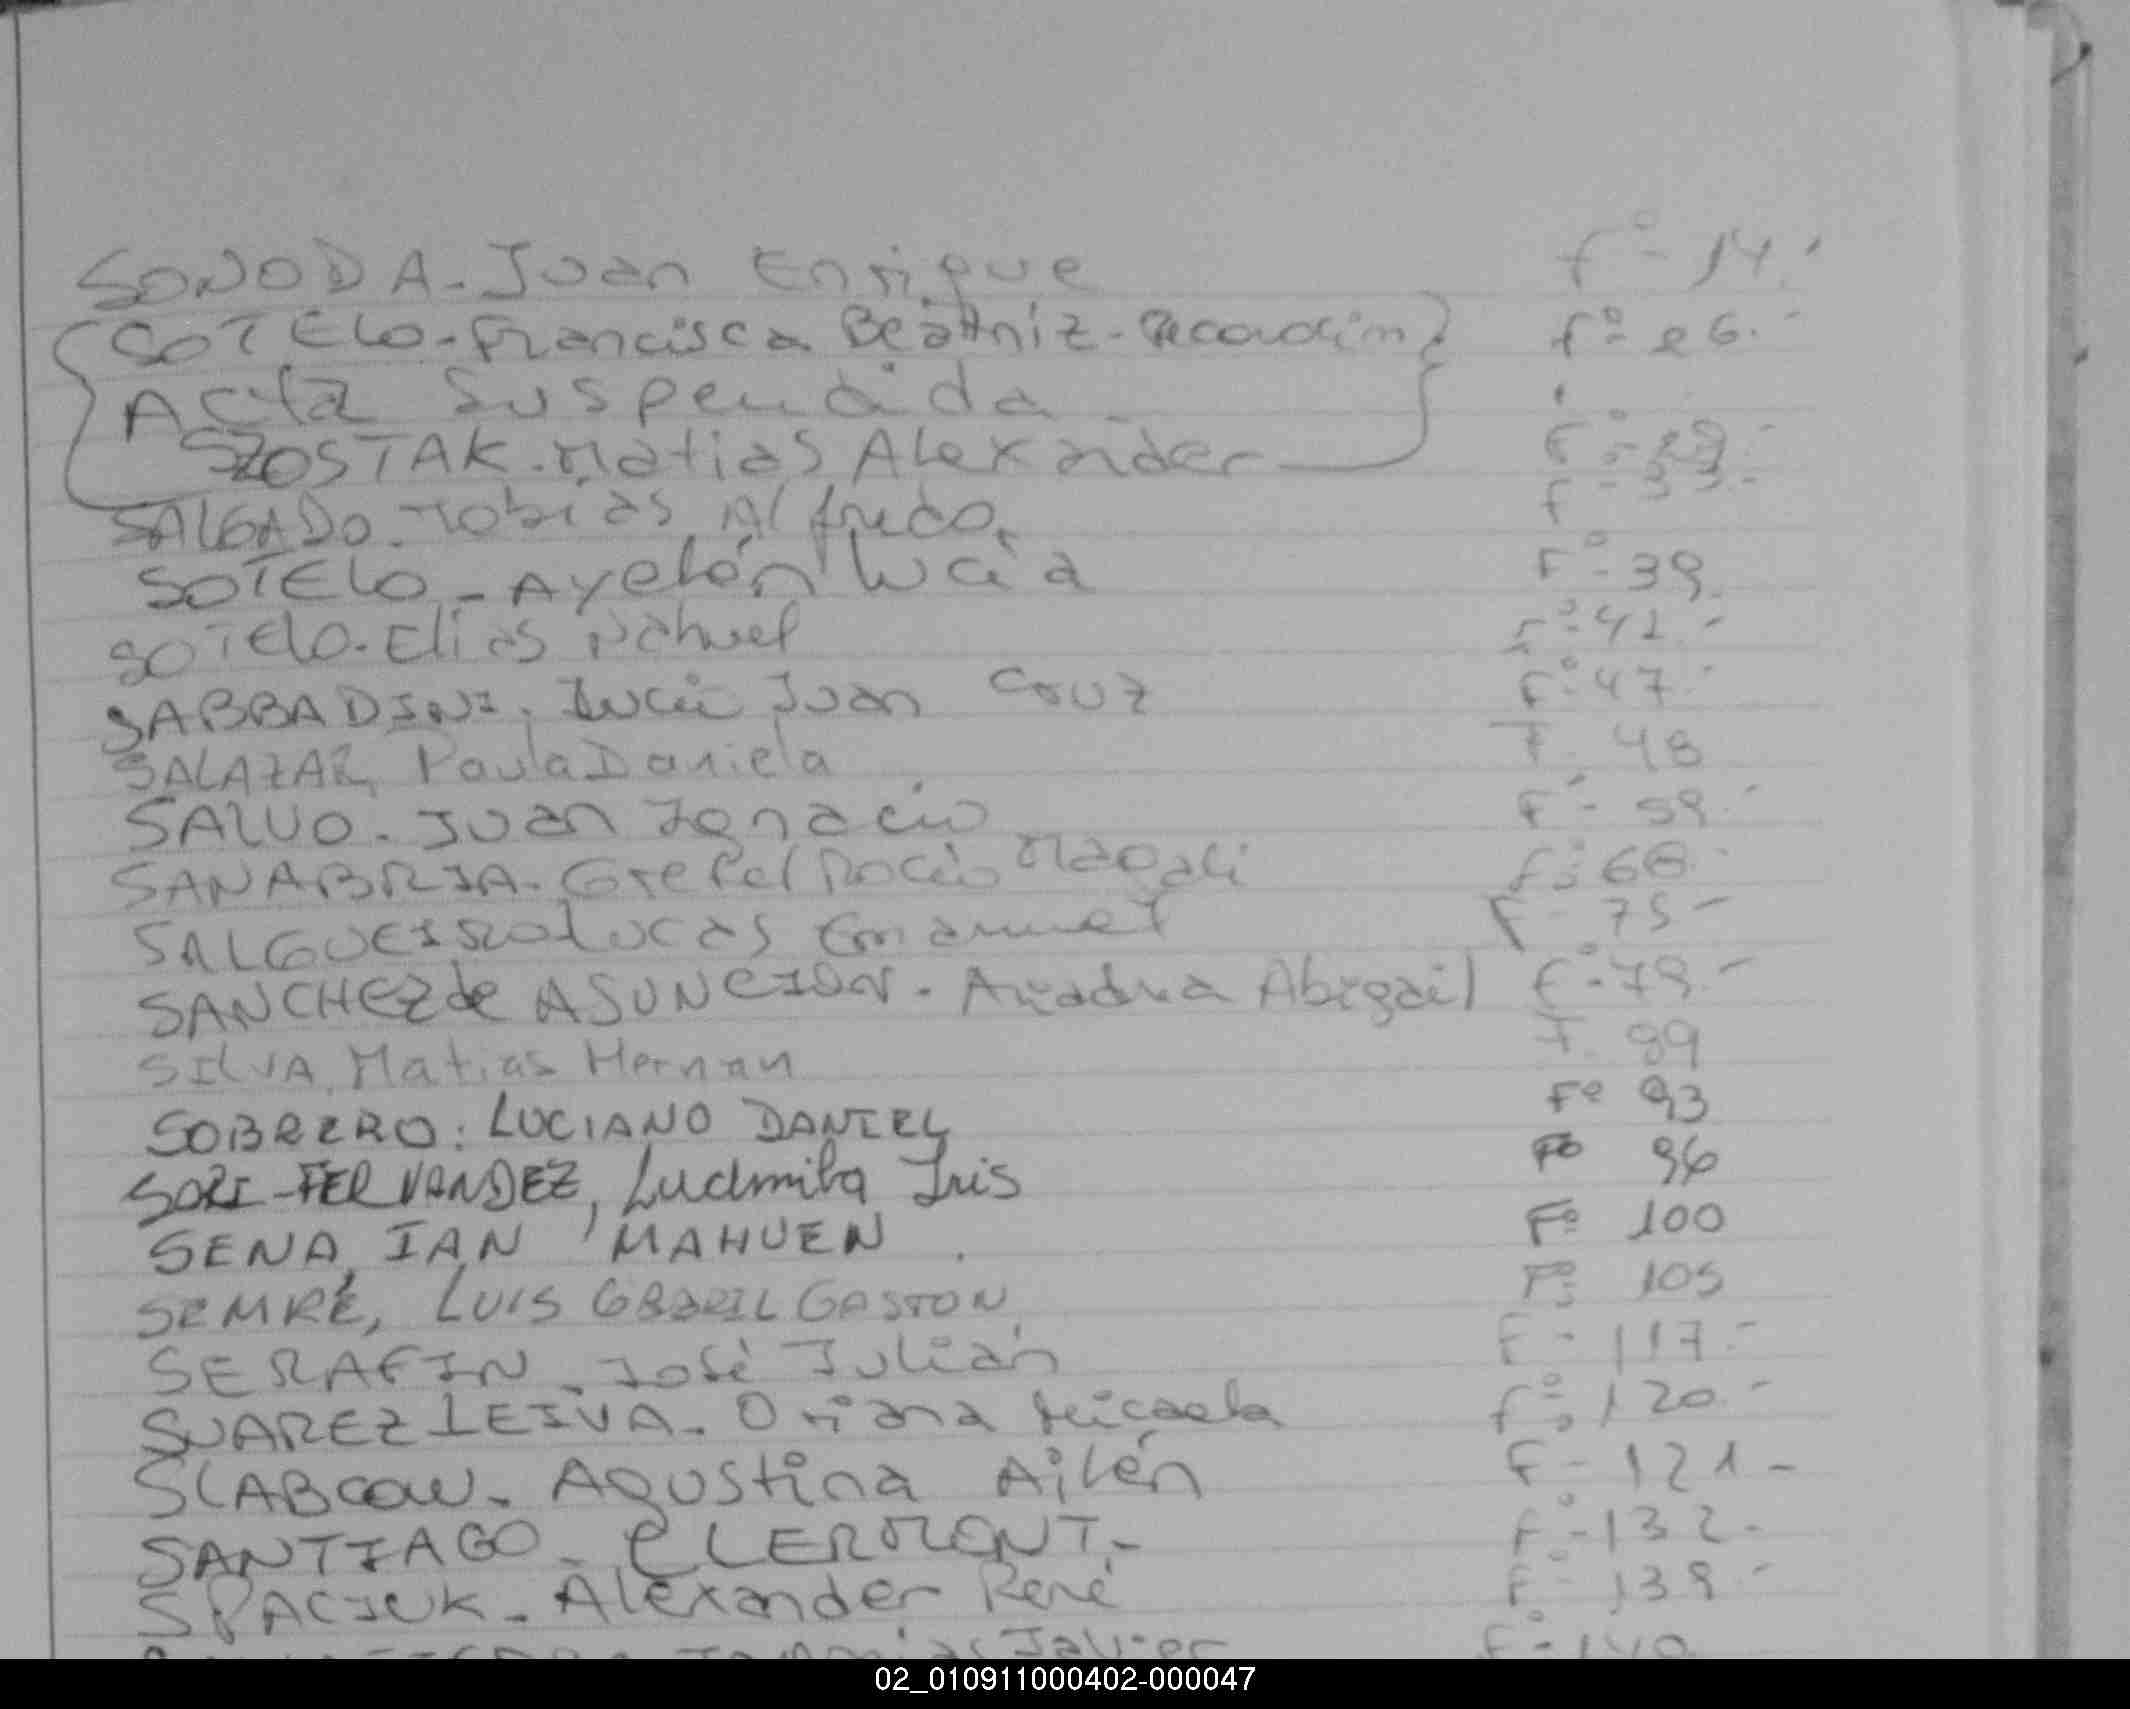 SONODA - Juan Enrique fº 14.-
SOTELO - Francisca Beatriz - fº 26.-
Acta Suspendida -
SZOSTAK - Matias Alexander fº 29.-
SALGADO - Tobias Alfredo, fº 33.-
SOTELO - Ayelén Lucia Fº 39.
SOTELO - Elias Nahuel Fº 42.-
SABBADINI - Lucio Juan Cruz Fº 47.-
SALAZAR, Paula Daniela F. 48
SALVO - Juan Ignacio Fº - 59.-
SANABRIA - Gretel Rocio Magali fº 68.-
SALGUEIRO Lucas Emanuel F - 75 -
SANCHEZ de ASUNCION - Ariadna Abigail fº 79.-
SILVA, Matias Hernan F. 89
SOBRERO: LUCIANO DANIEL Fº 93
SORI-FERNANDEZ, Ludmila Iris Fº 96
SENA, IAN MAHUEN. Fº 100
SEMRÉ, LUIS GASTON Fº 105
SERAFIN - José Julián F - 117.-
SUAREZ LEIVA - Oriana Micaela fº 120.-
Agustina Ailén F - 121 -
SANTIAGO - CLERMONT.- Fº - 132.-
SPACIUK - Alexander René Fº 139 -
Javier fº - 140
02_010911000402-000047